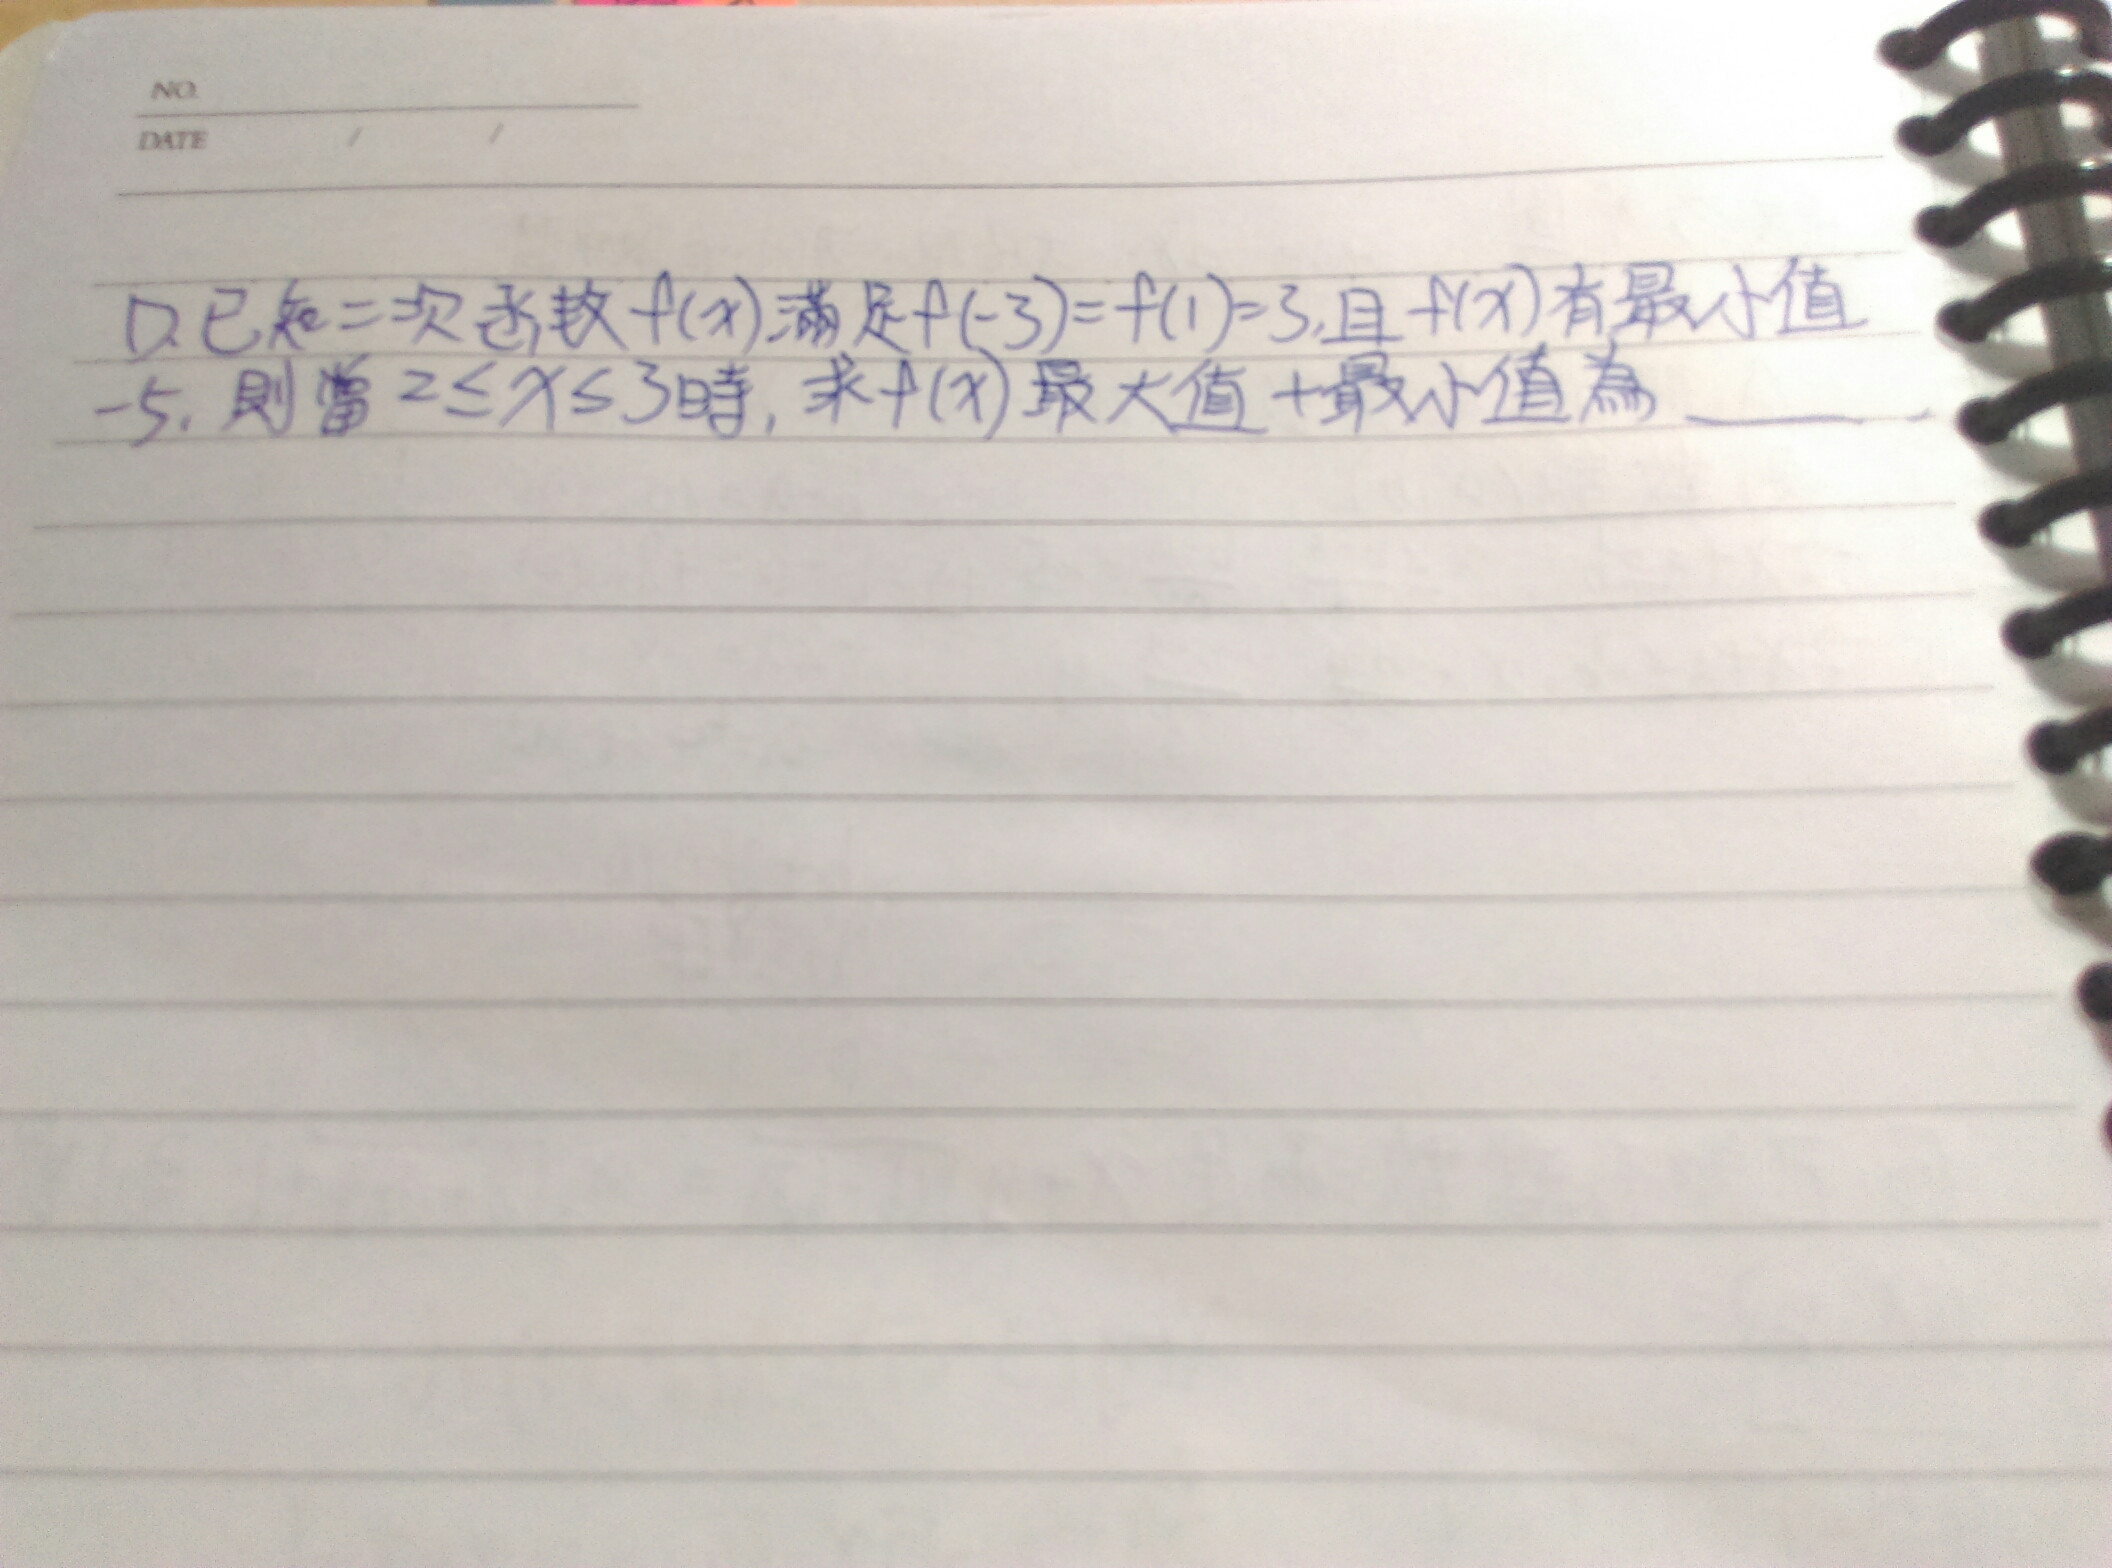 NO.
DATE / /
17.已知二次函数f(x)滿足f(-3)=f(1)=3,且f(x)有最小值
-5, 則當2≤x≤3時, 求f(x)最大值+最小值為______.